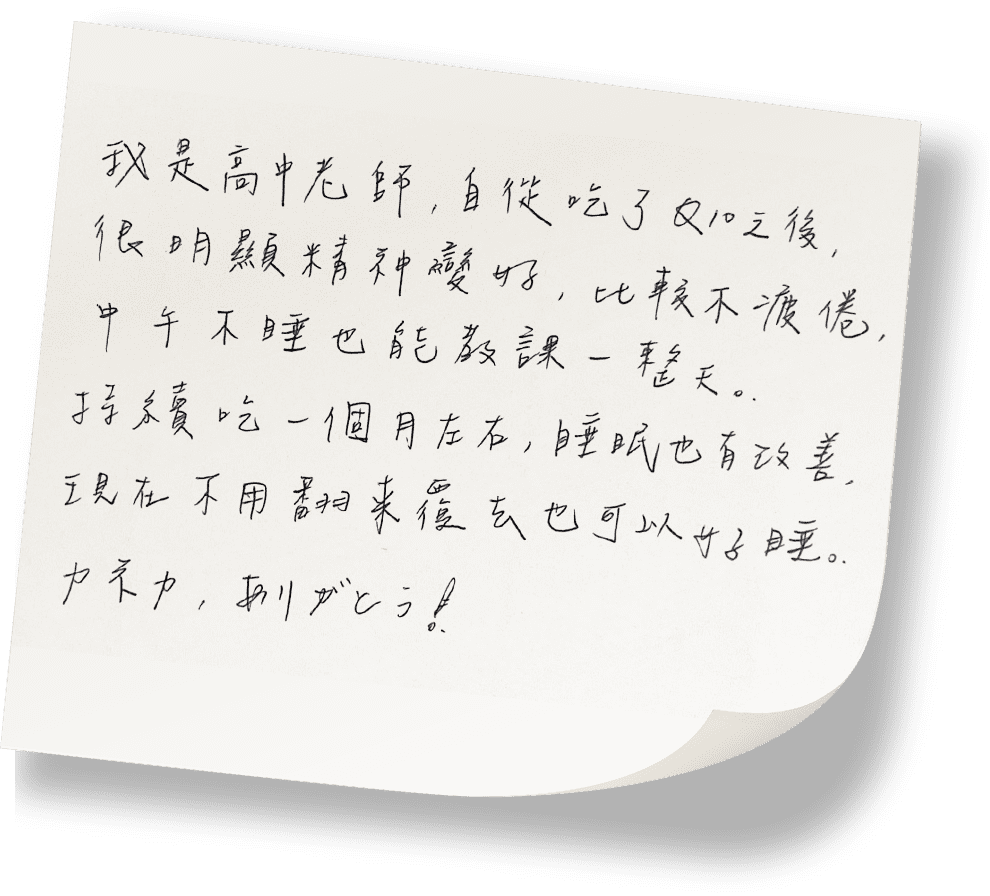 我是高中老師,自從吃了Q10之後,
很明顯精神變好,比較不疲倦,
中午不睡也能教課一整天。
持續吃一個月左右,睡眠也有改善,
現在不用翻来覆去也可以好睡。
カネカ,ありがとう!